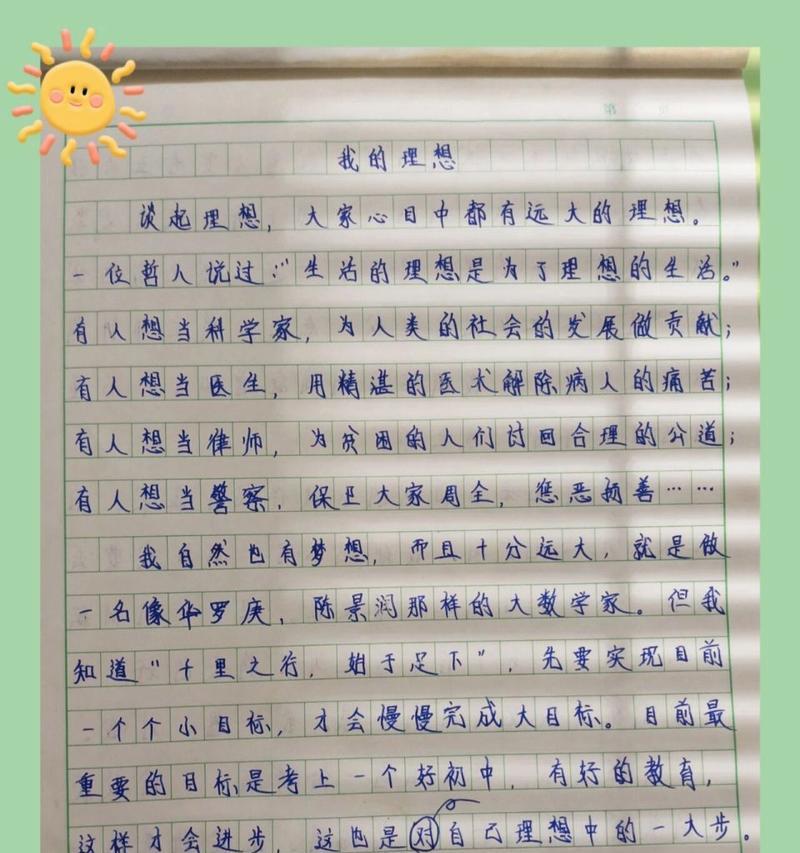 我的理想
谈起理想，大家心目中都有远大的理想。
一位哲人说过：“生活的理想是为了理想的生活。”
有人想当科学家，为人类的社会的发展做贡献；
有人想当医生，用精湛的医术解除病人的痛苦；
有人想当律师，为贫困的人们讨回合理的公道；
有人想当警察，保卫大家周全，惩恶扬善……
我自然也有梦想，而且十分远大，就是做
一名像华罗庚，陈景润那样的大数学家。但我
知道“千里之行，始于足下”，先要实现目前
一个个小目标，才会慢慢完成大目标。目前最
重要的目标是考上一个好初中，有好的教育，
这样才会进步，这也是对自己理想中的一大步。